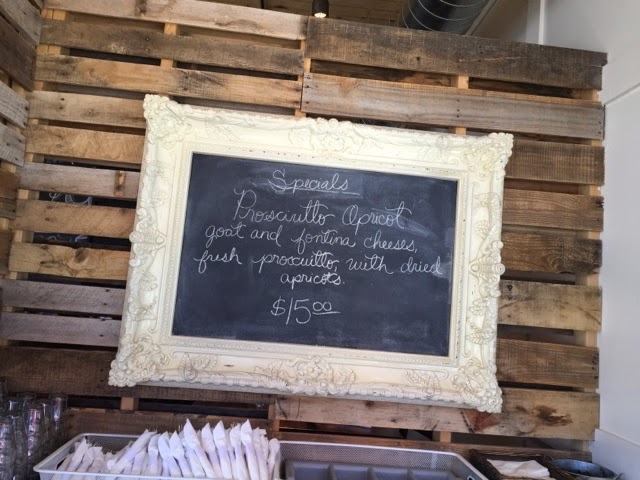 Specials
Prosciutto Apricot
goat and fontina cheeses,
fresh proccuitto, with dried
apricots.
$15.00